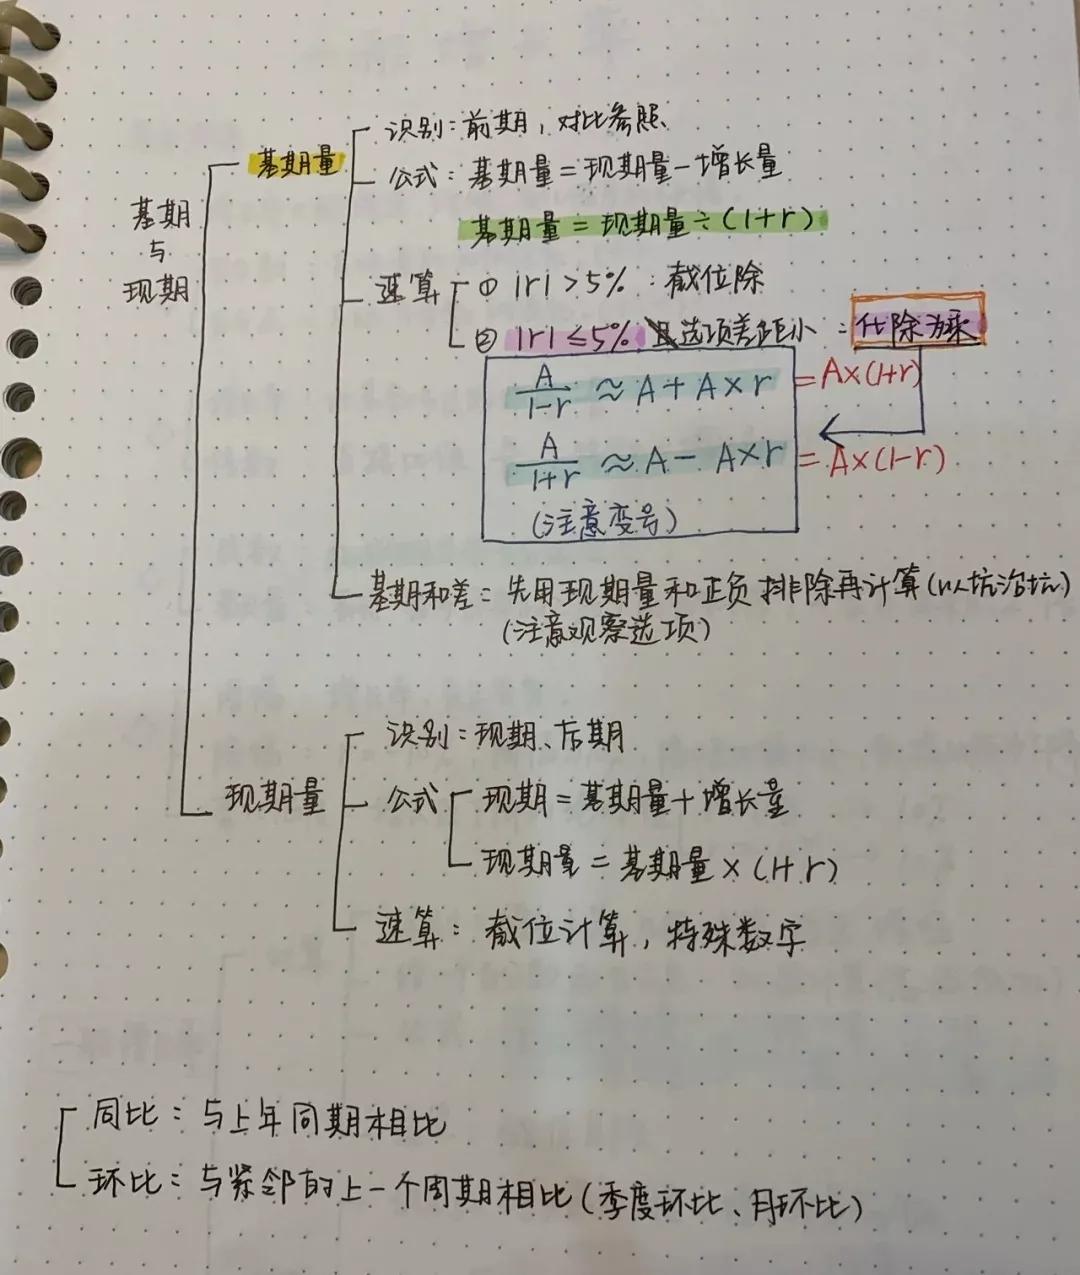 基期与现期
基期量
识别：前期，对比参照、
公式：基期量＝现期量－增长量
基期量＝现期量÷(1+r)
速算
① |r|＞5%：截位除
② |r|≤5% 且选项差距小：化除为乘
A/(1-r) ≈ A + A×r = A×(1+r)
A/(1+r) ≈ A - A×r = A×(1-r)
（注意变号）
基期和差：先用现期量和正负排除再计算（以坑治坑）
（注意观察选项）
现期量
识别：现期、后期
公式
现期＝基期量＋增长量
现期量＝基期量×(1+r)
速算：截位计算，特殊数字
同比：与上年同期相比
环比：与紧邻的上一个周期相比（季度环比、月环比）